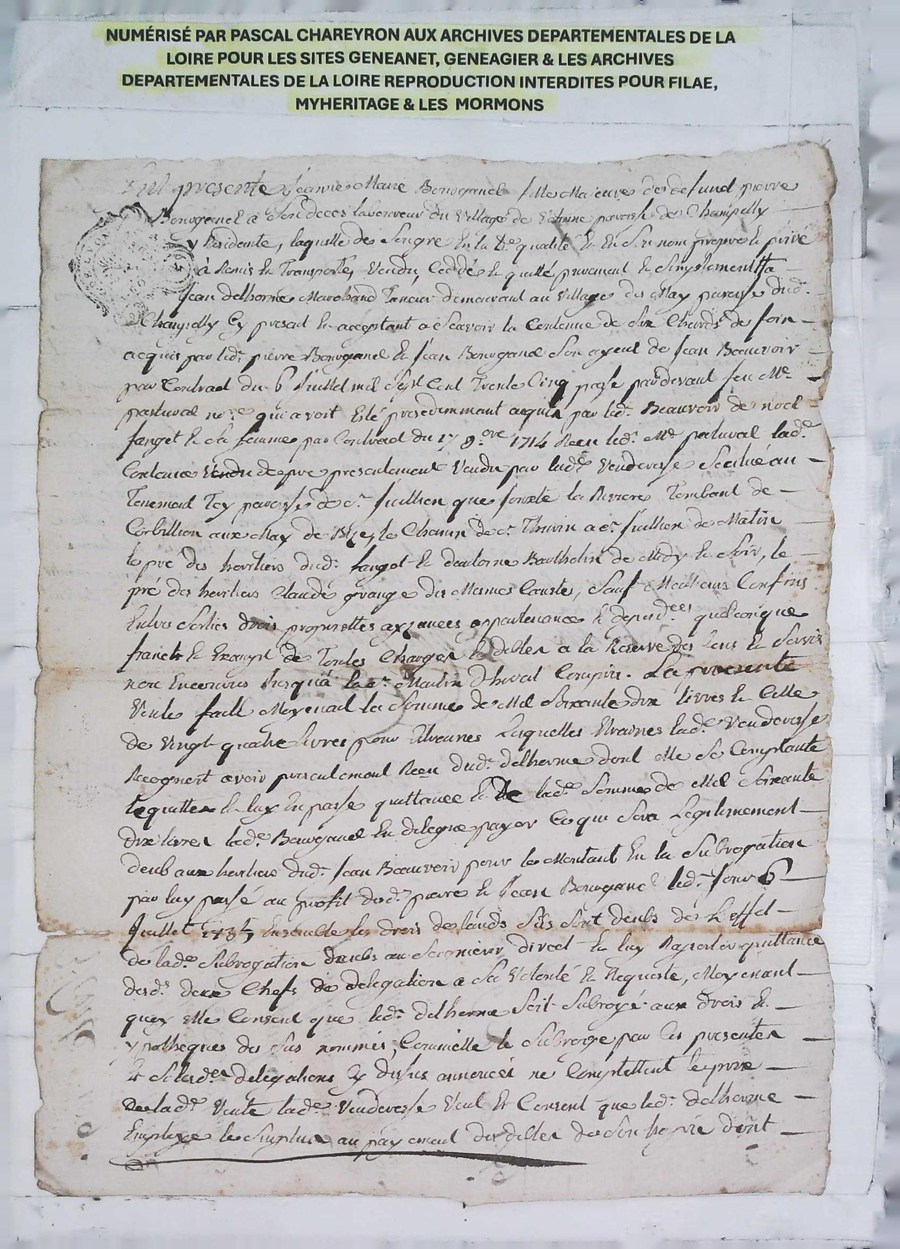 NUMÉRISÉ PAR PASCAL CHAREYRON AUX ARCHIVES DEPARTEMENTALES DE LA
LOIRE POUR LES SITES GENEANET, GENEAGIER & LES ARCHIVES
DEPARTEMENTALES DE LA LOIRE REPRODUCTION INTERDITES POUR FILAE,
MYHERITAGE & LES MORMONS
fut presente Jeanne Marie Bonnganel fille Majeure de defund pierre
a son deces laboureur du village de paroisse de Champolly
y Residente, laquelle de son gre En la de qualité Et En son nom propre et privé
à Remis Et Transporté, Vendu, Ceddé Et quitté purement Et simplement a
Jean delhorme Marchand demeurant au village de May paroisse dud.
Champolly Cy present Et acceptant a scavoir la Contenue de six Chards de foin
acquis par led. pierre Et Jean son ayeul de Jean Beauvoir
par Contract du 6 Juillet mil sept Cent Trente Cinq passé pardevant feu Me
pastural nore qui avoit Esté precedemmant acquis par led. Beauvoir de noel
fanget Et sa femme par Contract du 17 9.bre 1714 Receu led. Me pastural lad.
Contenue de pré presentement Vendu par lade Venderesse scitué au
Tenement paroisse de St. Juillien que jouxte la Riviere Tombant de
aux May de Bize, le Chemin de St. Thurin a St. Juillien de Matin
le pré des heritiers dud. fanget Et d'antoine Barthelin de Midy Et Soir, le
pré des heritiers Claude grange des Mesmes Costés, sauf Meilleurs Confins
Entrées Sorties drois proprietes aizances appartenances Et dependces quelconque
franche Et Exempt de Toutes Charges Et debtes a la Reserve des Cens Et Servis
non Encourrus Jusqua la St. Martin d'hivert Compris. La presente
Vente faitte Moyenant la Somme de Mil Soixante dix livres Et Celle
de Vingt quatre livres pour Etreines Lesquelles Etreines lade Venderesse
Recognoit avoir presentement Receu dud. delhorme dont Elle se Comptante
le quitte Et luy En passe quittance Et lade Somme de Mil Soixante
dix livres lade Bonnganel En delegue payer Ce qui Sera Legitimement
deub aux heritiers dud. Jean Beauvoir pour le Montant En la Subrogation
par luy passé au profit desd. pierre Et Jean led. Jour 6
Juillet 1735 Ensemble les drois de lauds Sils Sont deubs de L'effet
de lade Subrogation deubs au Seigneur direct Et luy Raporter quittance
desd. deux Chefs de delegation a Sa Volonté Et Requeste, Moyenant
quoy Elle Consent que led. delhorme Soit Subrogé aux drois Et
ypotheques des sus nommés, Comme Elle le Subroge par Ces presentes
Et Si lesdes delegations Cy dessus annoncés ne Complettent le prix
de lade Vente lade Venderesse Veut Et Consent que led. delhorme
Employe le Surplus au payement des debtes de Son hoirie dont